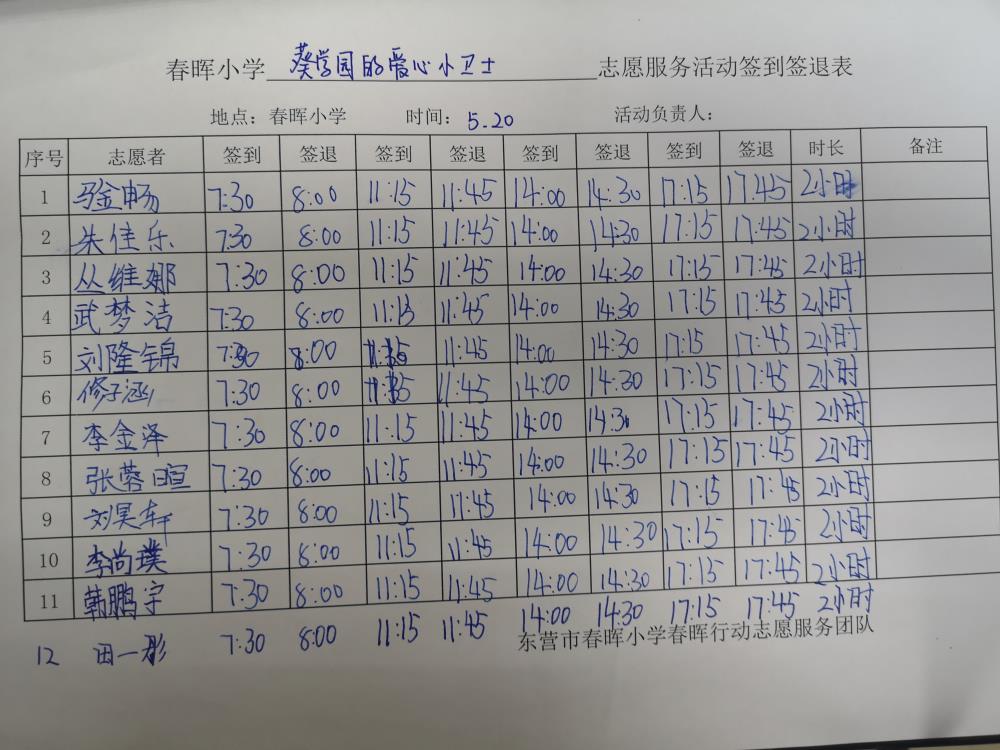 春晖小学 葵学园的爱心小卫士 志愿服务活动签到签退表
地点：春晖小学 时间：5.20 活动负责人：
序号 志愿者 签到 签退 签到 签退 签到 签退 签到 签退 时长 备注
1 马金畅 7:30 8:00 11:15 11:45 14:00 14:30 17:15 17:45 2小时
2 朱佳乐 7:30 8:00 11:15 11:45 14:00 14:30 17:15 17:45 2小时
3 丛维娜 7:30 8:00 11:15 11:45 14:00 14:30 17:15 17:45 2小时
4 武梦洁 7:30 8:00 11:15 11:45 14:00 14:30 17:15 17:45 2小时
5 刘隆锦 7:30 8:00 11:15 11:45 14:00 14:30 17:15 17:45 2小时
6 修子涵 7:30 8:00 11:15 11:45 14:00 14:30 17:15 17:45 2小时
7 李金泽 7:30 8:00 11:15 11:45 14:00 14:30 17:15 17:45 2小时
8 张蓉暄 7:30 8:00 11:15 11:45 14:00 14:30 17:15 17:45 2小时
9 刘昊轩 7:30 8:00 11:15 11:45 14:00 14:30 17:15 17:45 2小时
10 李尚璞 7:30 8:00 11:15 11:45 14:00 14:30 17:15 17:45 2小时
11 韩鹏宇 7:30 8:00 11:15 11:45 14:00 14:30 17:15 17:45 2小时
12 田一彤 7:30 8:00 11:15 11:45 14:00 14:30 17:15 17:45 2小时
东营市春晖小学春晖行动志愿服务团队